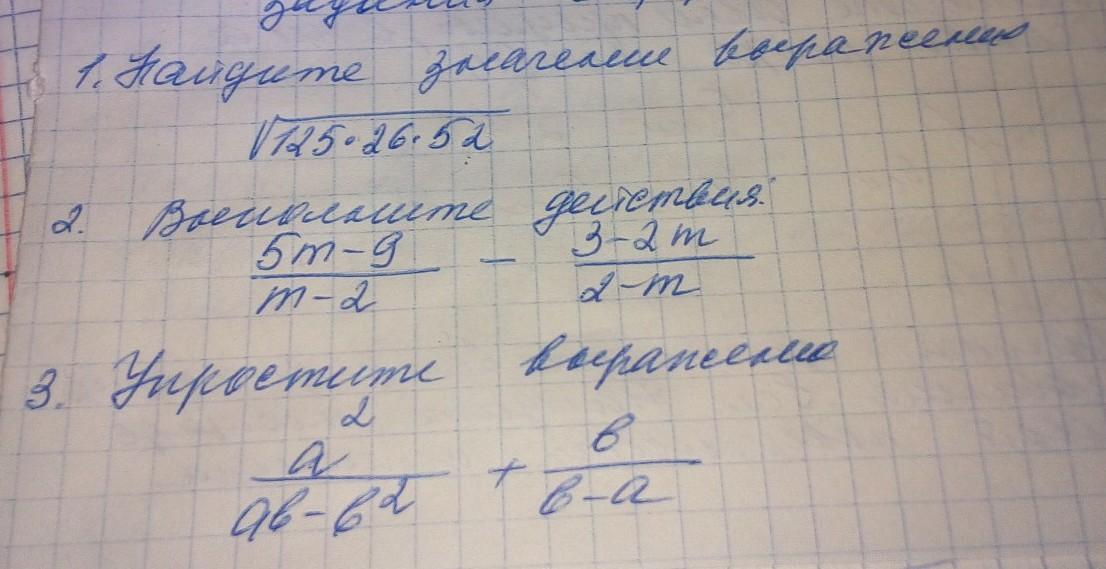 задания
1. Найдите значение выражения
√125·26·52
2. Выполните действия:
5m-9/m-2 - 3-2m/2-m
3. Упростите выражение
a²/ab-b² + b/b-a